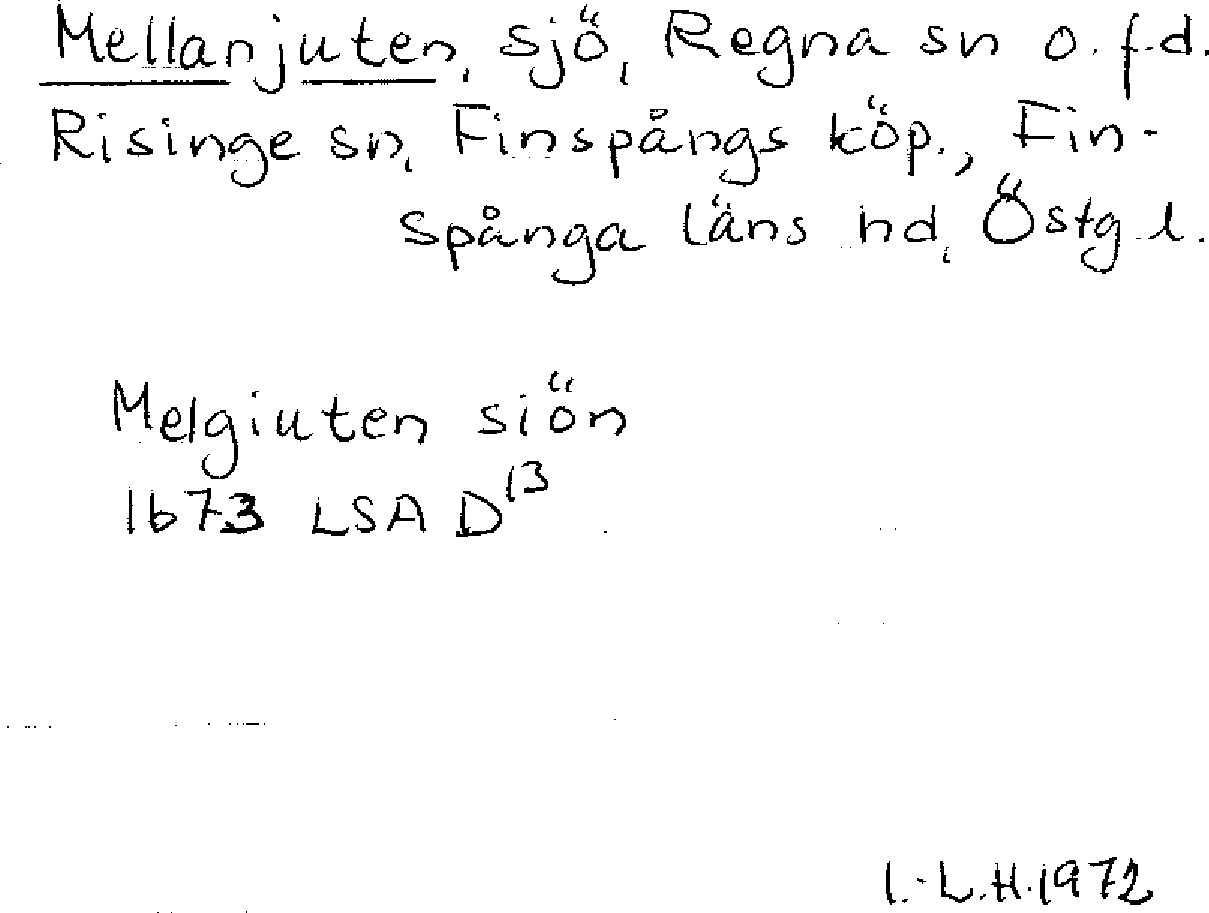 Mellanjuten, sjö, Regna sn o. f.d.
Risinge sn, Finspångs köp., Fin-
spånga läns hd, Östg. l.
Melgiuten siön
1673 LSA D¹³
I.-L.H. 1972